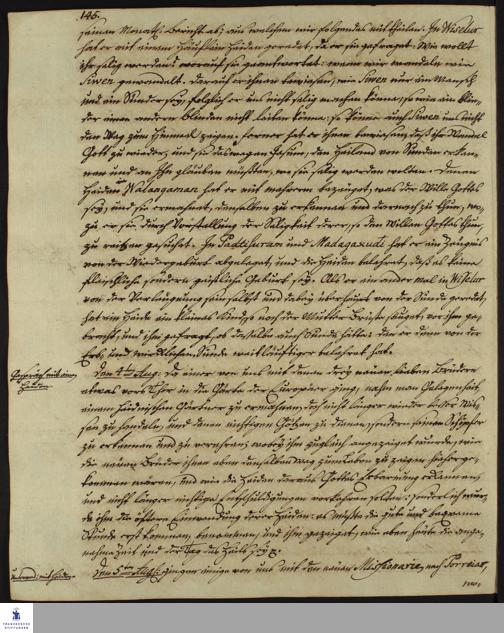 146.
seinen Monats-Bericht ab; aus welchem wir folgendes mittheilen. In Wiselur
hat er mit einem Häuflein Heiden geredet, da er sie gefraget: Wie wollt
ihr selig werden? worauf sie geantwortet: wenn wir wandeln, wie
Siwen gewandelt. Darauf er ihnen bewiesen, wie Siwen nur ein Mensch
und ein Sünder sey, folglich er uns nicht selig machen könne, so wie ein blin-
der einen andern blinden nicht leiten könne: so könne auch Siwen uns nicht
den Weg zum Himmel zeigen. ferner hat er ihnen bewiesen, daß ihr Wandel
Gott zu wieder, und sie deswegen Jesum, den Heiland von Sünden erken-
nen und an Ihn glauben müsten, wo sie selig werden wolten. Denen
Heiden in Wadagaman hat er mit mehrern bezeuget, was der Wille Gottes
sey, und sie ermahnet, denselben zu erkennen und darnach zu thun, wo-
zu er sie durch Vorstellung der Seligkeit derer, so den Willen Gottes thun,
zu reitzen gesucht. In Padtisuram und Madagaxudi hat er ein Zeugnis
von der Wiedergeburt abgeleget, und die Heiden belehret, daß es keine
fleischliche sondern geistliche Geburt sey. Als er ein ander mal in Wiselur
von der Verleugnung sein selbst und dabey überhaupt von der Sünde geredet,
hat ein Heide ein kleines Kind, so noch der Mutter Brüste sauget, vor ihn ge-
bracht, und ihn gefragt, ob dasselbe auch Sünde hätte: da er denn von der
Erb- und wircklichen Sünde weitläuftiger belehret hat.
Gespräch mit einem
Heiden.
Den 4ten Aug. da einer von uns mit denen drey neuen lieben Brüdern
etwas vors Thor in die Gärten der Europäer ging, nahm man Gelegenheit,
einen heidnischen Gärtner zu ermahnen, doch nicht länger wieder besser Wis-
sen zu handeln, und denen nichtigen Götzen zu dienen, sondern seinen Schöpfer
zu erkennen und zu verehren; wobey ihm zugleich angezeiget wurde, wie
die neuen Brüder ihnen eben denselben Weg zum Leben zu zeigen hieher ge-
kommen wären, und wie die Heiden daraus Gottes Erbarmung erkennen,
und nicht länger nichtige Entschuldigungen vorkehren solten: sonderlich wur-
de ihm die öftere Einwendung derer Heiden: als müste die gute und bequeme
Stunde erst kommen, benommen, und ihm gezeiget, wie eben heute die ange-
nehme Zeit und der Tag des Heils sey.
Den 5ten Aug. gingen einige von uns mit den neuen Missionariis nach Porreiar,
FRANCKESCHE
STIFTUNGEN